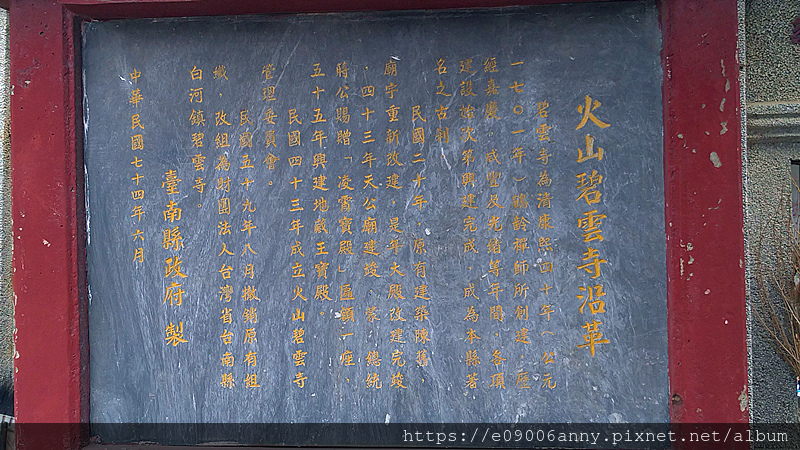 火山碧雲寺沿革
碧雲寺為清康熙四十年（公元
一七０一年）鶴齡禪師所創建，歷
經嘉慶，咸豐及光緒等年間，各項
建設始次第興建完成，成為本縣著
名之古剎。
民國二十年，原有建築陳舊，
廟宇重新改建，是年大殿改建完竣
，四十三年天公廟建竣，蒙　總統
蔣公賜贈「凌霄寶殿」匾額一座，
五十五年興建地藏王寶殿。
民國四十三年成立火山碧雲寺
管理委員會。
民國五十九年八月撤銷原有組
織，改組為財團法人台灣省台南縣
白河鎮碧雲寺。
臺南縣政府　製
中華民國七十四年六月
https://e09006anny.pixnet.net/album